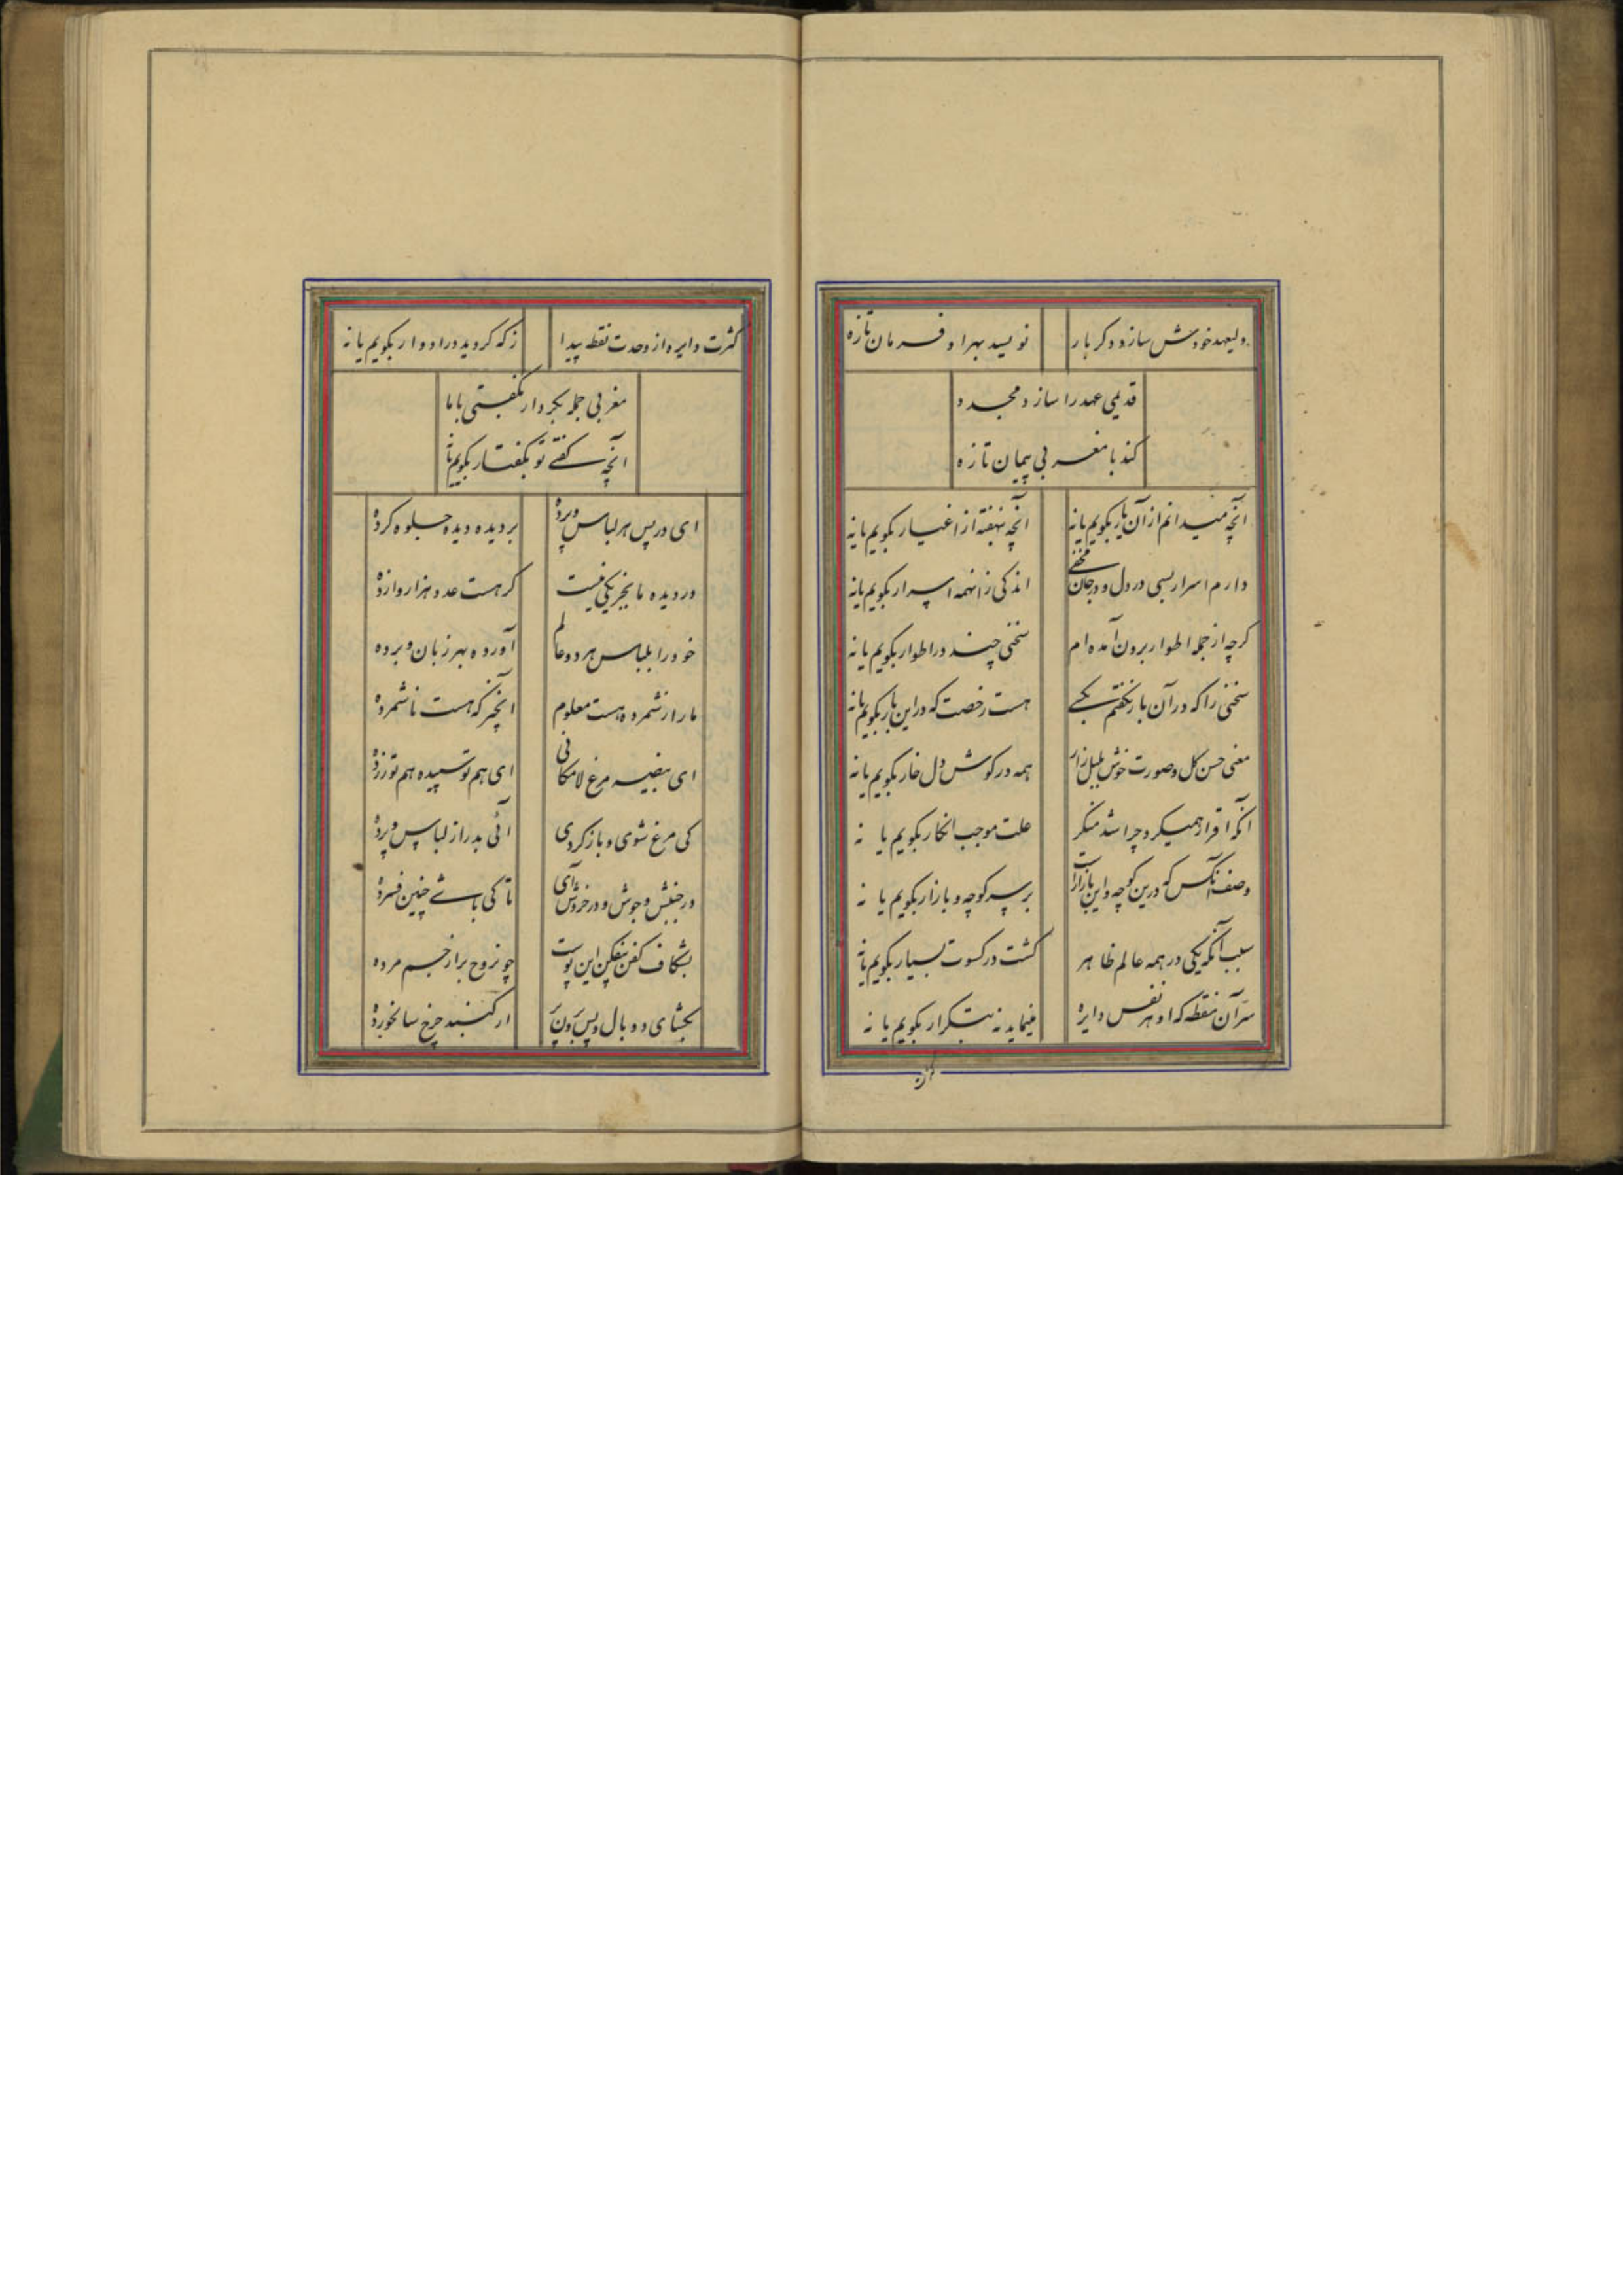 ولیعهد خودش سازد دکر بار نویسد بهر او فرمان تازه
قدیمی عهد را سازد مجدد
کند با مغربی پیمان تازه
آنچه میدانم از آن یار بکویم یا نه آنچه بنهفته از اغیار بکویم یا نه
دارم اسرار بسی در دل و در جان مخفی اندکی زانهمه اسرار بکویم یا نه
کرچه از جمله اطوار برون آمده ام سخنی چند در اطوار بکویم یا نه
سخنی را که در آن بار نکفتم بکسی هست رخصت که در این بار بکویم یا نه
معنی حسن کل و صورت خوش بلبل زار همه در کوش دل خار بکویم یا نه
آنکه اقرار همیکرد چرا شد منکر علت موجب انکار بکویم یا نه
وصف آنکس که درین کوچه و این بازارست بر سر کوچه و بازار بکویم یا نه
سبب آنکه یکی در همه عالم ظاهر کشت در کسوت بسیار بکویم یا نه
سر آن نقطه که او هر نفس دایره مینماید نه بتکرار بکویم یا نه
کثرت دایره از وحدت نقطه پیدا زکه کردید در ادوار بکویم یا نه
مغربی جمله بکردار بکفتی با ما
آنچه کفتی تو بکفتار بکویم یا نه
ای در پس هر لباس و پرده بر دیده دیده جلوه کرده
در دیده ما بجز یکی نیست کر هست عدد هزار وازده
خود را بلباس هر دو عالم آورده بهر زبان و برده
ما را زشمرده هست معلوم آنچیز که هست ناشمرده
ای بیضه مرغ لامکانی ای هم تو سپیده هم تو زرده
کی مرغ شوی و باز کردی آئی بدر از لباس و پرده
در جنبش و جوش و در خروش آی تا کی باشی چنین فسرده
بشکاف کفن بفکن این پوست چون روح برا زجسم مرده
بکشای دو بال و پس برون پر از کنبد چرخ سالخورده